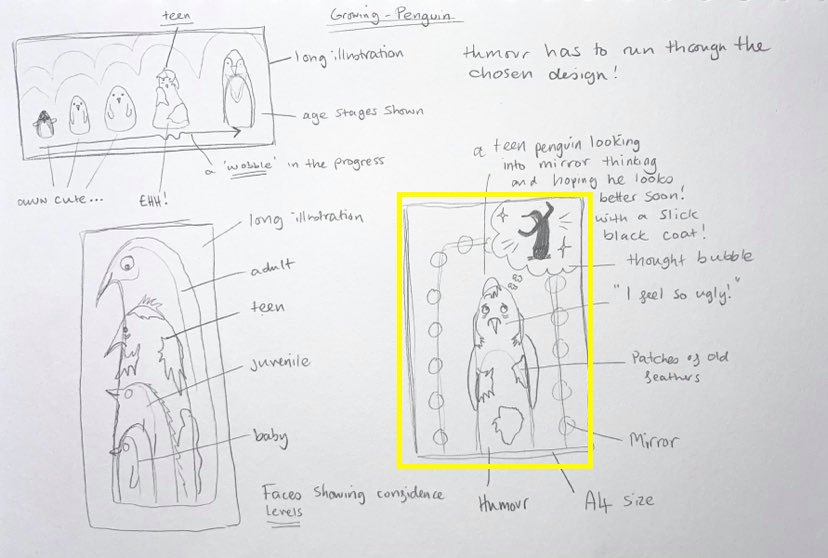 Growing-Penguin
teen
long illustration
age stages shown
a 'wobble' in the progress
aww cute...
EHH!
humour has to run through the
chosen design!
a teen penguin looking
into mirror thinking
and hoping he looks
better soon!
with a slick
black coat!
thought bubble
"I feel so ugly!"
Patches of old
feathers
Mirror
A4 size
Humour
long illustration
adult
teen
juvenile
baby
Faces showing confidence
levels